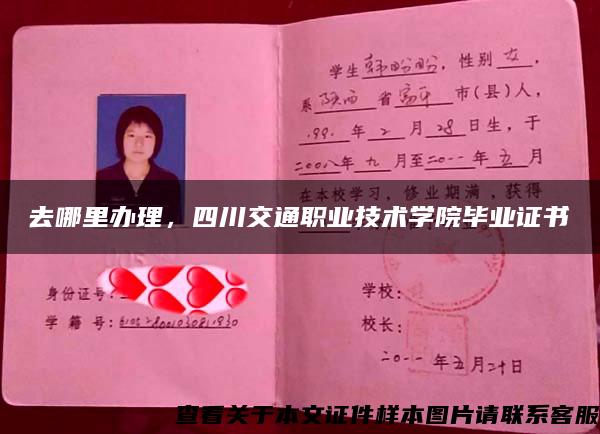 学生韩盼盼，性别女，
系陕西省富平市(县)人，
199 年2月28日生，于
二00八年九月至二0一一年五月
在本校学习，修业期满，获得
去哪里办理，四川交通职业技术学院毕业证书
身份证号：
学籍号：
学校：
校长：
二0一一年五月二十日
查看关于本文证件样本图片请联系客服